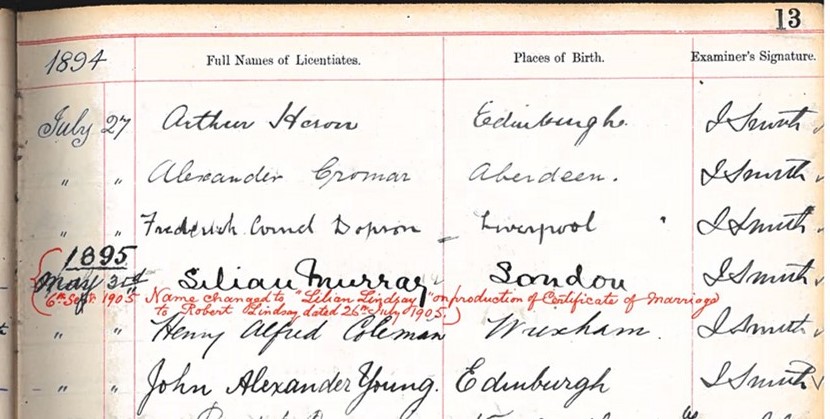 13
1894 Full Names of Licentiates. Places of Birth. Examiner's Signature.
July 27 Arthur Heron Edinburgh. I Smith
" " Alexander Cromar Aberdeen. I Smith
" " Frederick Dopson Liverpool I Smith
1895
May 3rd Lilian Murray London I Smith
6th Sept. 1905 Name changed to "Lilian Lindsay" on production of Certificate of Marriage
to Robert Lindsay dated 26th July 1905.
" " Henry Alfred Coleman Wrexham. I Smith
" " John Alexander Young. Edinburgh I Smith